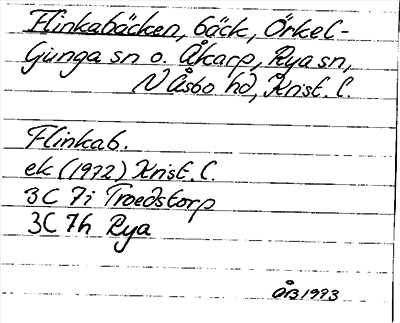 Flinkabäcken, bäck, Örkel-
ljunga sn o. Åkarp, Rya sn,
N Åsbo hd, Krist. l.
Flinkab.
ek (1972) Krist. l.
3C 7i Troedstorp
3C 7h Rya
ÅB 1993